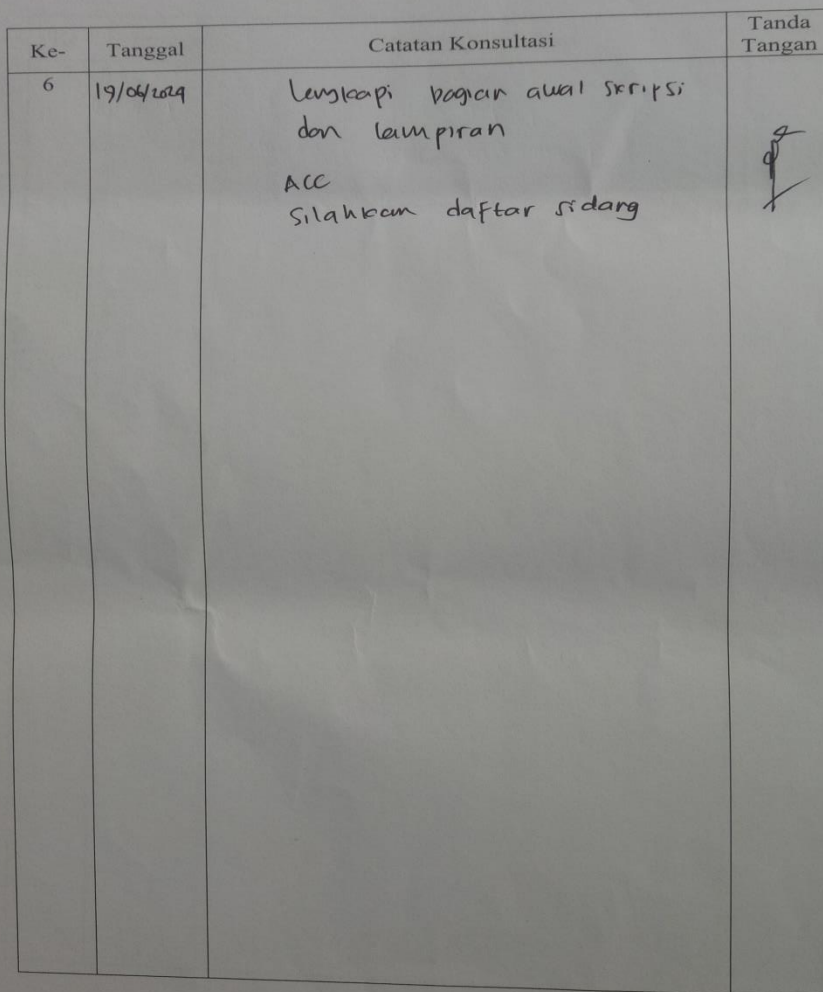 Ke- Tanggal Catatan Konsultasi Tanda Tangan
6 19/06/2024 Lengkapi bagian awal skripsi
dan lampiran
ACC
Silahkan daftar sidang